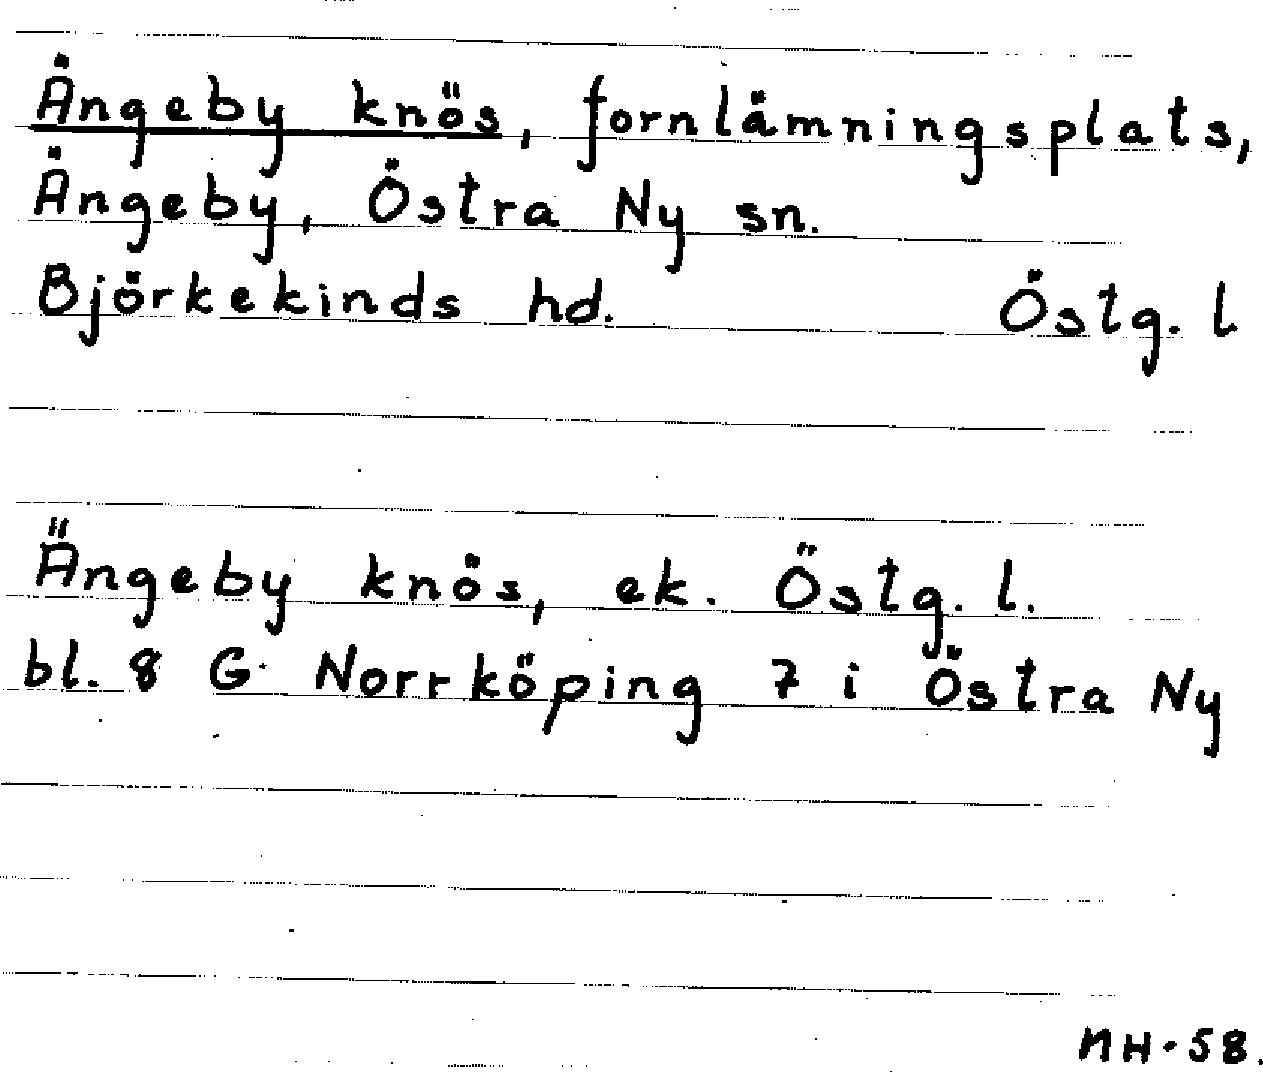 Ängeby knös, fornlämningsplats,
Ängeby, Östra Ny sn.
Björkekinds hd. Östg. l
Ängeby knös, ek. Östg. l.
bl. 8 G Norrköping 7 i Östra Ny
NH-58.